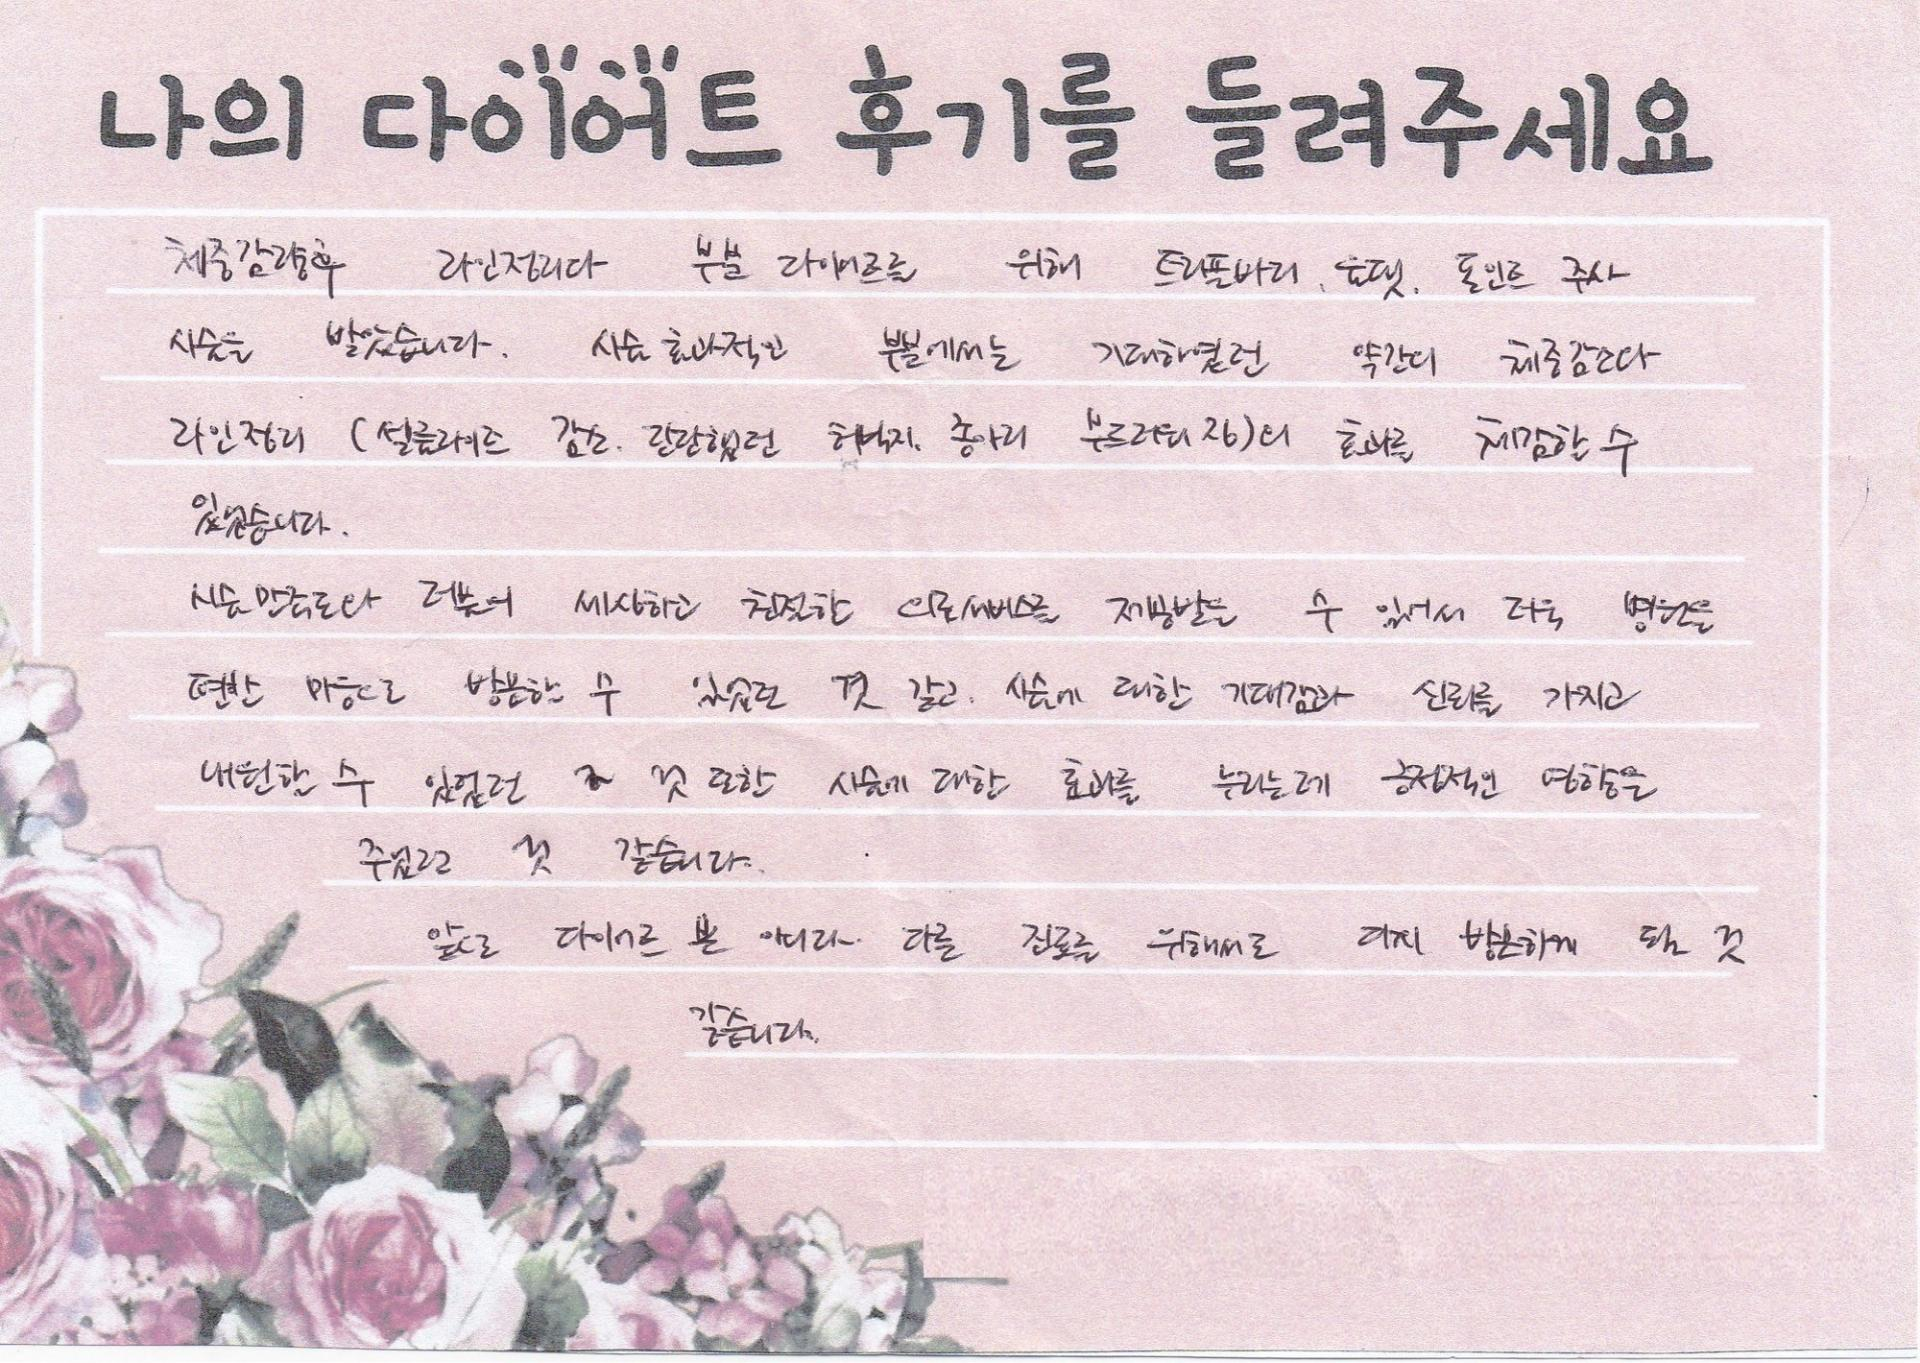 나의 다이어트 후기를 들려주세요
체중감량후 라인정리와 부분 다이어트를 위해 트리플바디, 포인트 주사
시술을 받았습니다. 시술 효과적인 부분에서는 기대하였던 약간의 체중감소와
라인정리 (셀룰라이트 감소. 단단했던 허벅지, 종아리 부드러워 짐)의 효과를 체감할 수
있었습니다.
시술만족도와 더불어 세심하고 친절한 의료서비스를 제공받을 수 있어서 더욱 병원을
편한 마음으로 방문할 수 있었던 것 같고. 시술에 대한 기대감과 신뢰를 가지고
내원할 수 있었던 것 또한 시술에 대한 효과를 누리는데 긍정적인 영향을
주었던 것 같습니다.
앞으로 다이어트 뿐 아니라 다른 진료를 위해서도 다시 방문하게 될 것
같습니다.